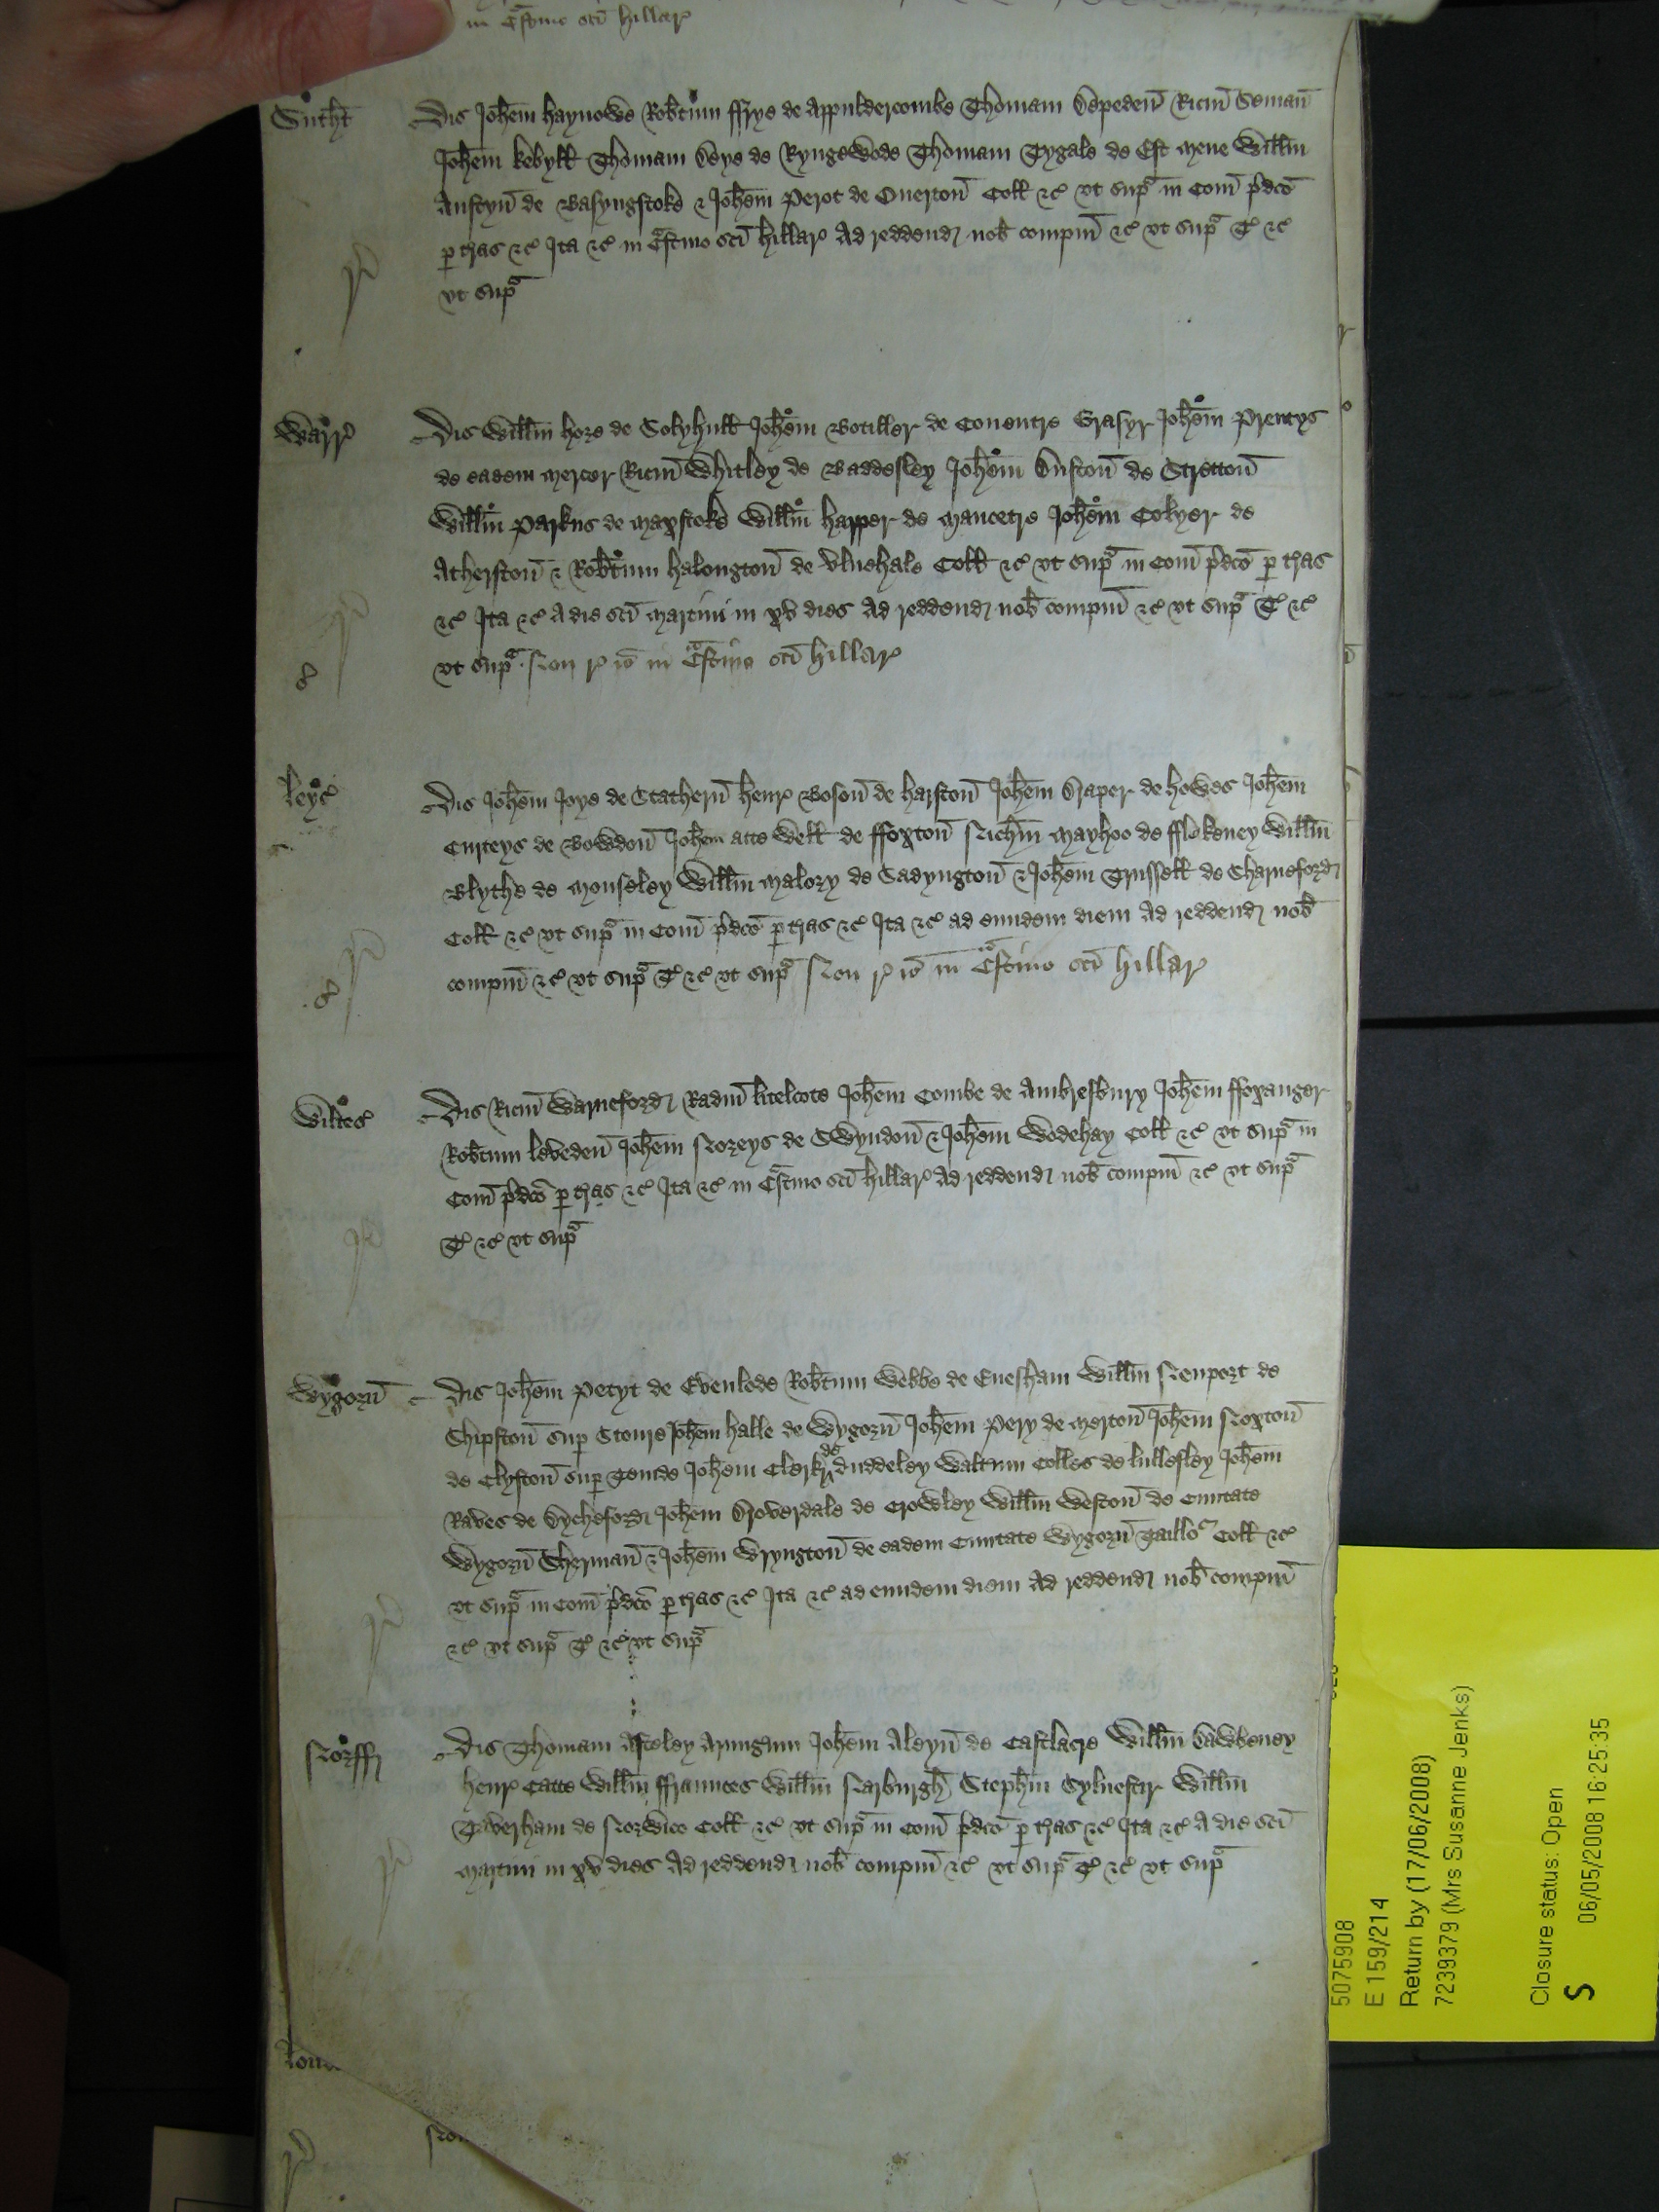 in Cͣstino sc̄i hillarꝭ
Sutht̄
Dis Joh̄em haynowe Rob̄tum ffrye de Appuldercombe Thomam Depeden̄ Ric̄m Seman̄
Joh̄em kebyll Thomam Deye de Ryngewode Thomam Tygale de Est Mene Will̄m
Austyn̄ de Basyngstoke ⁊ Joh̄em Perot de Ouerton̄ Coll̄ ⁊c̄ vt supͣ in Com̄ p̄dc̄o
ꝑ th̄as ⁊c̄ Ita ⁊c̄ in Cͣstino sc̄i hillarꝭ Ad reddend nob̄ compm̄ ⁊c̄ vt supͣ T̄ ⁊c̄
vt supͣ
Warr̄
Dis Will̄m hore de Solyhull Joh̄em Botiller de Couentre Grasyr Joh̄em Prentys
de eadem Mercer Ric̄m Whitley de Baddesley Joh̄em Duston̄ de Stretton̄
Will̄m Parkus de Maxstoke Will̄m harper de Mancetre Joh̄em Colyer de
Atherston̄ ⁊ Rob̄tum halougton̄ de Vluehale Coll̄ ⁊c̄ vt supͣ in Com̄ p̄dc̄o ꝑ th̄as
⁊c̄ Ita ⁊c̄ A die sc̄i Martini in xv dies Ad reddend nob̄ compm̄ ⁊c̄ vt supͣ T̄ ⁊c̄
vt supͣ Non r̄ io in Cͣstino sc̄i hillarꝭ
Leyc̄
Dis Joh̄em Joye de Stathern̄ henr̄ Boson̄ de harston̄ Joh̄em Draper de howes Joh̄em
Curteys de Bowdon̄ Joh̄em atte Well de ffoxton̄ Nich̄m Mayhoo de fflekeney Will̄m
Blythe de Mouseley Will̄m Malory de Sadyngton̄ ⁊ Joh̄em Trussell de Sharneford
Coll̄ ⁊c̄ vt supͣ in Com̄ p̄dc̄o ꝑ th̄as ⁊c̄ Ita ⁊c̄ ad eundem diem Ad reddend nob̄
compm̄ ⁊c̄ vt supͣ T̄ ⁊c̄ vt supͣ Non r̄ io in Cͣstino sc̄i hillarꝭ
Wiltes
Dis Ric̄m Warneford Radm̄ litelcote Joh̄em Combe de Ambresbury Joh̄em ffoxanger
Rob̄tum loveden̄ Joh̄em Noreys de Swyndon̄ ⁊ Joh̄em Wodehay Coll̄ ⁊c̄ vt supͣ in
Com̄ p̄dc̄o ꝑ th̄as ⁊c̄ Ita ⁊c̄ in Cͣstino sc̄i hillarꝭ Ad reddend nob̄ compm̄ ⁊c̄ vt supͣ
T̄ ⁊c̄ vt supͣ
Wygorn̄
Dis Joh̄em Petyt de Evenlode Rob̄tum Webbe de Euesham Will̄m Neuport de
Shipston̄ sup Stoure Joh̄em halle de Wygorn̄ Joh̄em Pery de Merton̄ Joh̄em Noxton̄
de Clyfton̄ sup Temde Joh̄em Clerk de duddeley Walt̄um Colles de lullesley Joh̄em
Raves de Dycheford Joh̄em Droverdale de Crowley Will̄m Weston̄ de Ciuitate
Wygorn̄ Sherman̄ ⁊ Joh̄em Wryngton̄ de eadem Ciuitate Wygorn̄ Taillor Coll̄ ⁊c̄
vt supͣ in Com̄ p̄dc̄o ꝑ th̄as ⁊c̄ Ita ⁊c̄ ad eundem diem Ad reddend nob̄ compm̄
⁊c̄ vt supͣ T̄ ⁊c̄ vt supͣ
Norff
Dis Thomam Asteley Armiḡum Joh̄em Aleyn̄ de Castelacre Will̄m Dawbeney
henr̄ Catte Will̄m ffraunces Will̄m Narburgh Steph̄m Sylvestir Will̄m
Taverham de Norwico Coll̄ ⁊c̄ vt supͣ in Com̄ p̄dc̄o ꝑ th̄as ⁊c̄ Ita ⁊c̄ A die sc̄i
Martini in xv dies Ad reddend nob̄ compm̄ ⁊c̄ vt supͣ T̄ ⁊c̄ vt supͣ
5075908
E 159/214
Return by (17/06/2008)
7239379 (Mrs Susanne Jenks)
Closure status: Open
S
06/05/2008 16:25:35